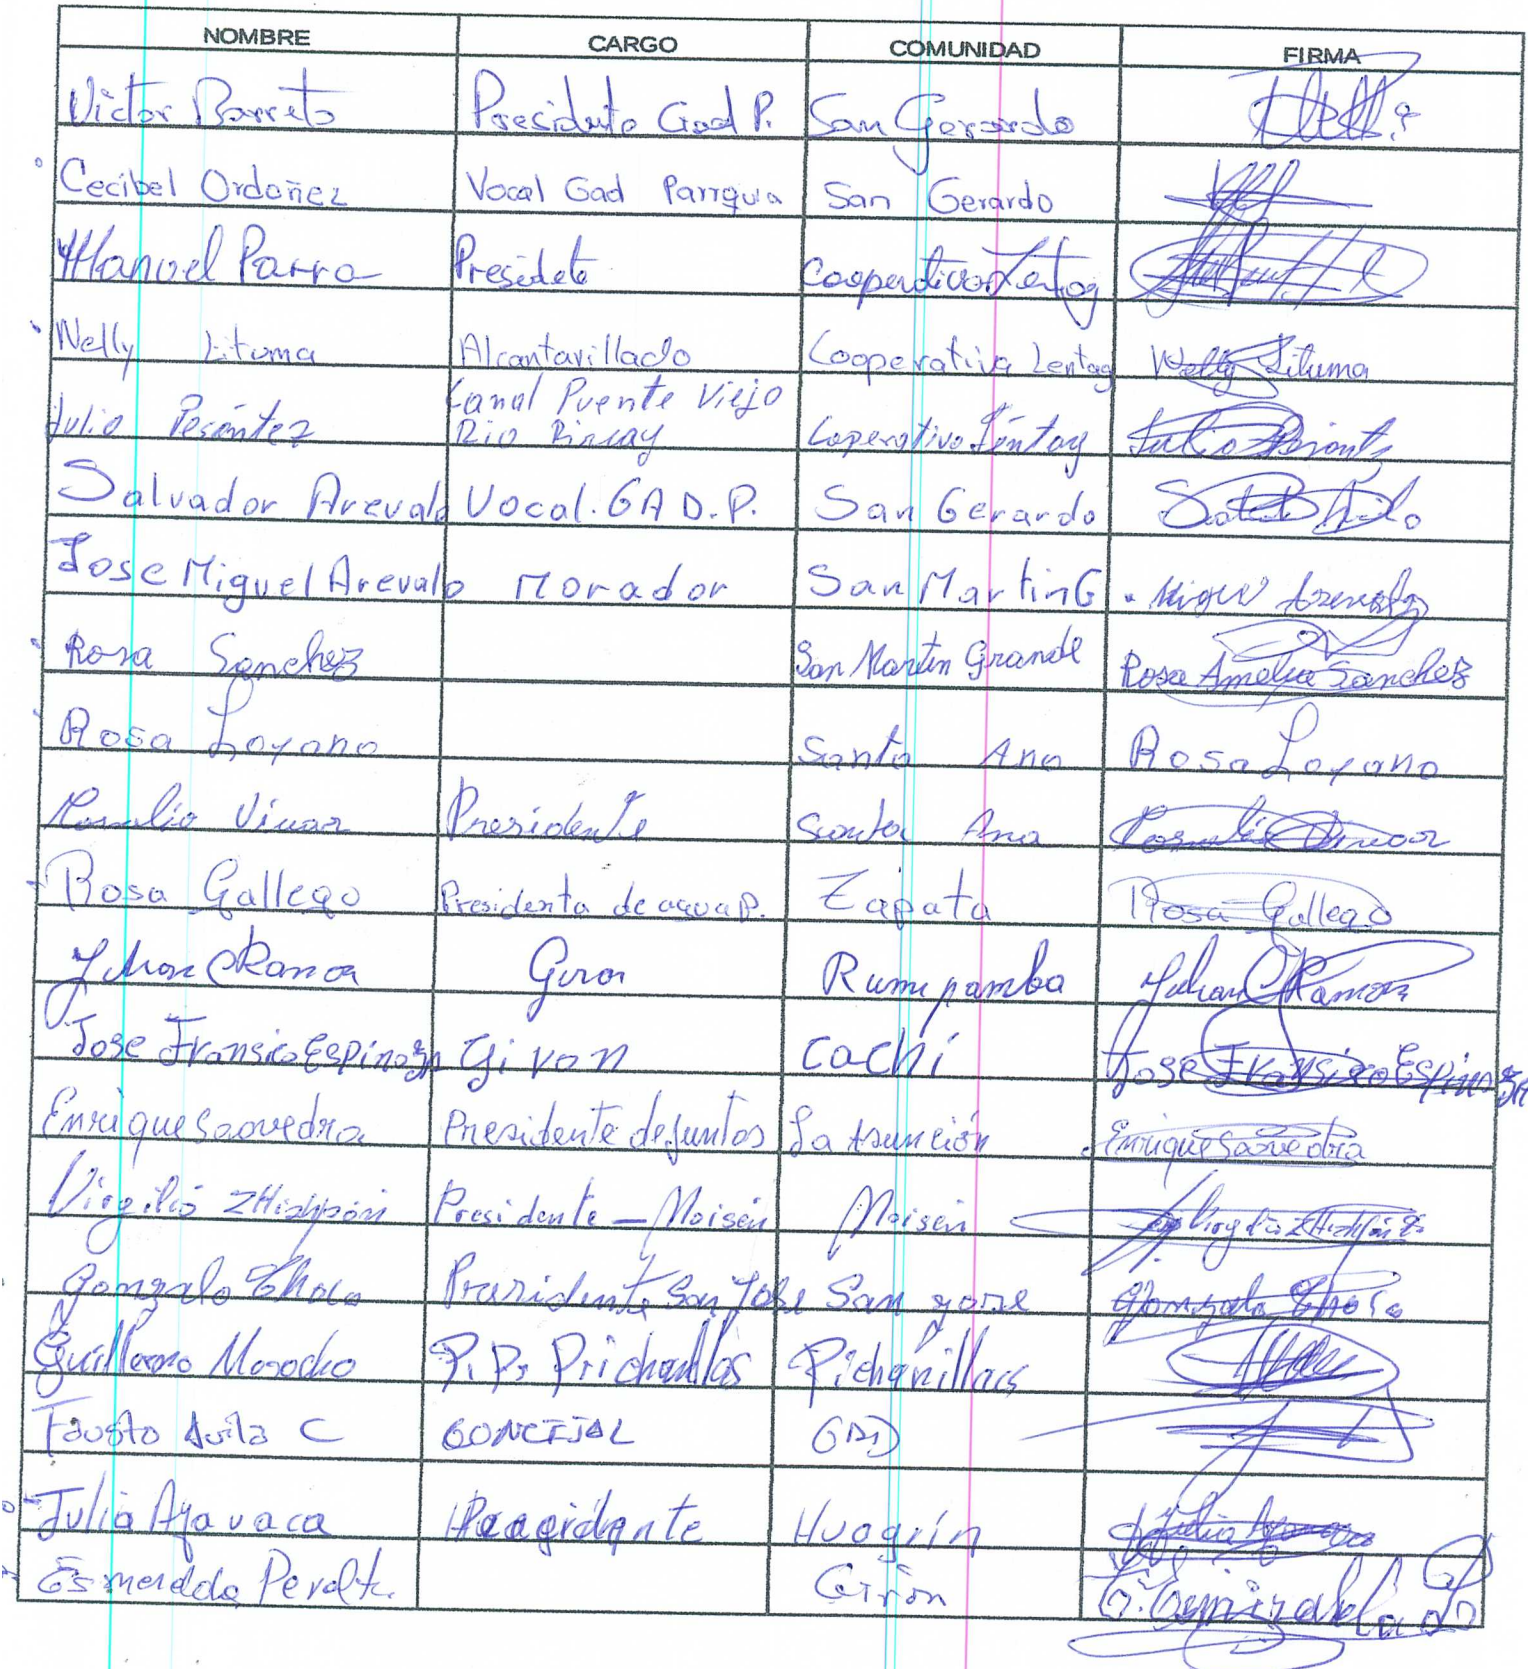 NOMBRE CARGO COMUNIDAD FIRMA
Victor Barreto Presidente Gad P. San Gerardo
Cecibel Ordoñez Vocal Gad Parrquia San Gerardo
Manuel Parra Presidete Cooperativa Lentag
Nelly Lituma Alcantarillado Cooperativa Lentag Nelly Lituma
Canal Puente Viejo
Julio Pesántez Rio Rircay Coperativa Léntag Julio
Salvador Arevalo Vocal. GAD.P. San Gerardo
Jose Miguel Arevalo Morador San Martin G Miguel Arevalo
Rosa Sanchez San Martin Grande Rosa Amelia Sanchez
Rosa Loyano Santa Ana Rosa Loyano
Vivar Presidente Santa Ana
Rosa Gallego Presidenta de agua P. Zapata Rosa Gallego
Ramon Giron Rumipamba Julian Ramon
Jose Fransico Espinoza Giron Cachi Jose Fransisco Espinoza
Enrique Saavedra Presidente de Juntas La Asunción Enrique Saavedra
Virgilio ZHishpón Presidente - Moisén Moisén Virgilio
Gonzalo Presidente San Jose San gose Gonzalo
Guillermo Morocho P. P. Prichanllas Pichanillas
Fausto Avila C CONCEJAL GAD
Julia Ayavaca Huagrin Julia
Esmeralda Peralta. Girón